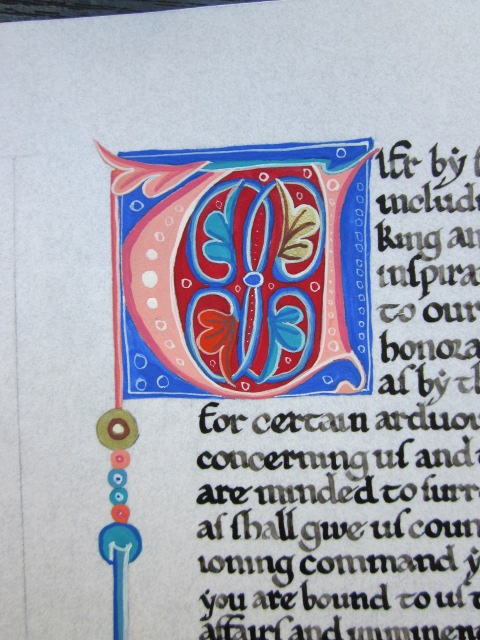 by
includ
king an
inspira
to our
honora
as by th
for certain arduou
concerning us and
are minded to surr
as shall give us coun
ioning command y
you are bound to us
affairs and imminen